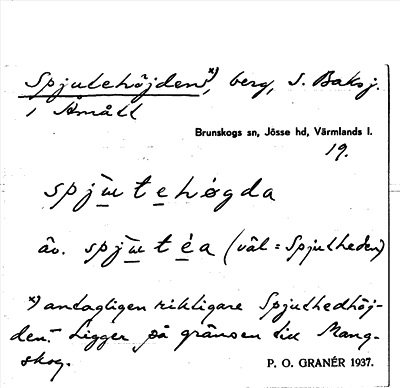 Spjutehöjden*), berg, S. Baksj.
i Åmått
Brunskogs sn, Jösse hd, Värmlands l.
19.
spjù̱ te̱høgda
äv. spjù̱ té̱a (väl = Spjutheden)
*) antagligen riktigare Spjuthedhöj-
den. – Ligger på gränsen till Mang-
skog.
P. O. GRANÉR 1937.